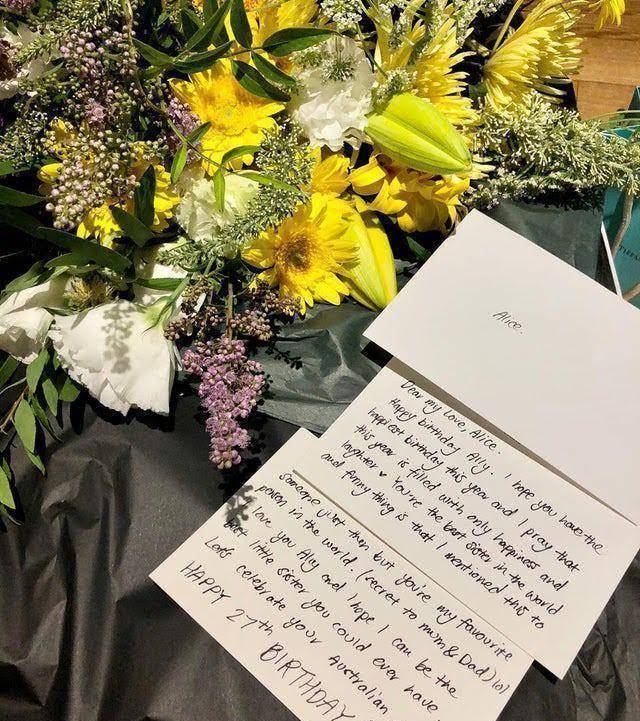 Alice.
Dear my love, Alice.
Happy birthday Ally. I hope you have the
happiest birthday this year and I pray that
this year is filled with only happiness and
laughter ♥ You're the best sister in the world
and funny thing is that I mentioned this to
someone just then but you're my favourite
person in the world. (secret to mum & Dad) lol
I love you Ally and I hope I can be the
best little sister you could ever have
Lets celebrate your Australian
HAPPY 27th
BIRTHDAY